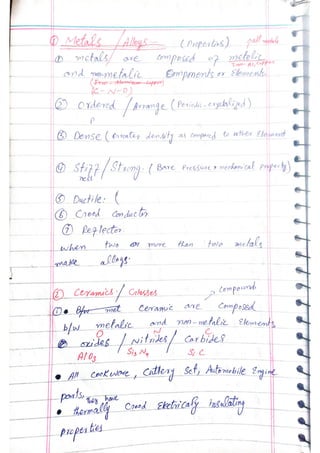 ① Metals / Alloys - (Properties) pall metals
① metals/ are composed of metalic
Iron - Al, Copper
and nonmetalic Components or Elements
(Iron - Aluminum - Copper)
(C - N - O)
② Ordered / Arrange (Periodic - crystalized)
P
③ Dense (Greater density as compared to other Element
④ Stiff / Strong. (Bare Pressure & mechanical property)
ness
⑤ Ductile: (
⑥ Good Conductor
⑦ Reflector
when two or more than two metals
make alloys.
② Ceramics / Glasses
Compound
① • Ceramic are Composed
b/w metalic and non-metalic Elements
O N C
② oxides / Nitrides / Carbides
AlO3 Si3N4 SiC
• All Cookware, Cuttery Set, Automobile Engine
parts.
• they have
thermally Good Eletrically Insulating
properties